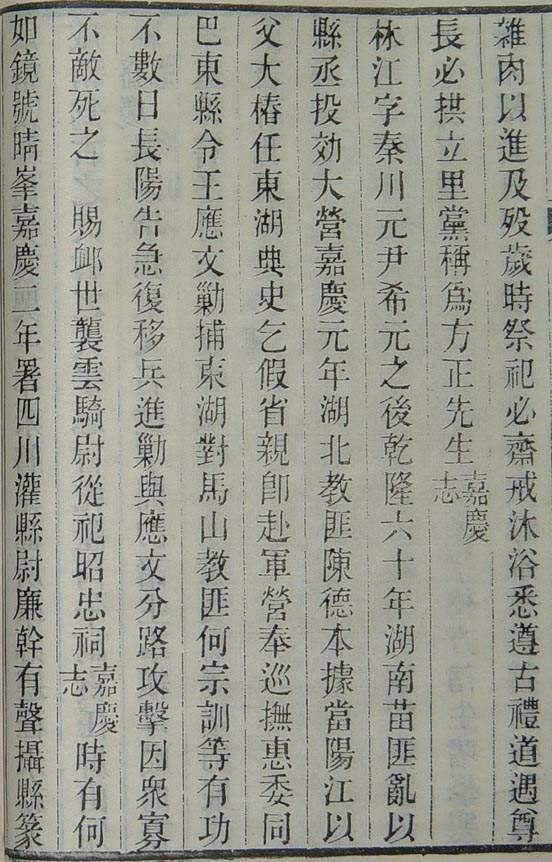 雜肉以進及歿歲時祭祀必齋戒沐浴悉遵古禮道遇尊
長必拱立里黨稱爲方正先生嘉慶志
林江字秦川元尹希元之後乾隆六十年湖南苗匪亂以
縣丞投効大營嘉慶元年湖北教匪陳德本據當陽江以
父大椿任東湖典史乞假省親卽赴軍營奉巡撫惠委同
巴東縣令王應文勦捕東湖對馬山教匪何宗訓等有功
不數日長陽告急復移兵進勦與應文分路攻擊因衆寡
不敵死之 賜卹世襲雲騎尉從祀昭忠祠嘉慶志時有何
如鏡號晴峯嘉慶二年署四川灌縣尉廉幹有聲攝縣篆